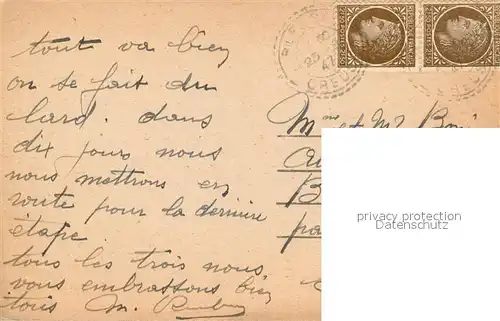 tout va bien
on se fait du
lard. dans
dix jours nous
nous mettrons en
route pour la dernière
étape
tous les trois nous
vous embrassons bien
tous M.
Mme et Mr
B
pa
25
47
CREUSE
privacy protection
Datenschutz